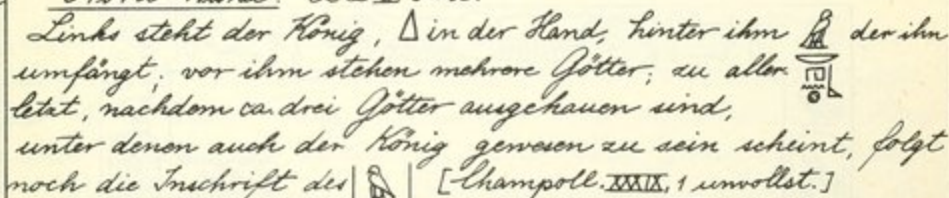 Links steht der König, △ in der Hand; hinter ihm der ihn
umfängt; vor ihm stehen mehrere Götter; zu aller-
letzt, nachdem ca. drei Götter ausgehauen sind,
unter denen auch der König gewesen zu sein scheint, folgt
noch die Inschrift des [Champoll. XXXIX, 1 unvollst.]